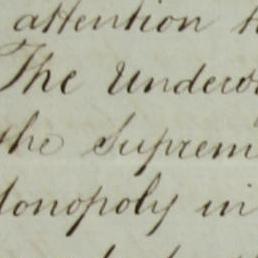 attention
The
the Suprem
onopoly in